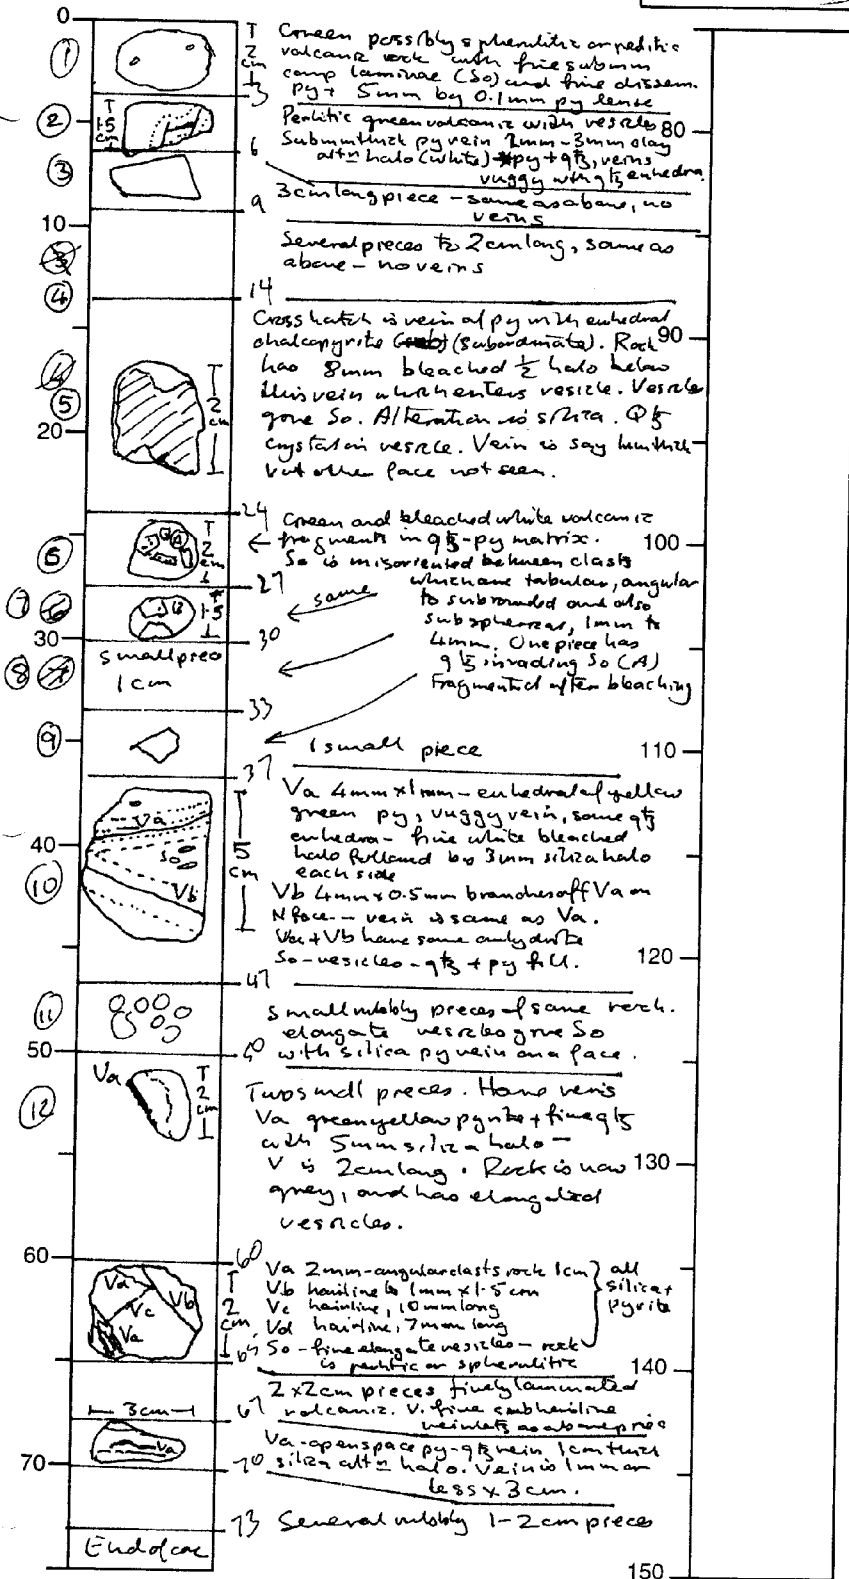 0
① T 2 cm Green possibly spherulitic or perlitic
volcanic rock with fine submm
comp laminae (So) and fine dissem.
3 py + 5mm by 0.1mm py lense
② T 1.5 cm Perlitic green volcanic with vesicles 80
Submm thick py vein 2mm-3mm clay
6 altn halo (white) py + qtz, veins
vuggy with qtz enhedra.
③
9 3cm long piece - same as above, no
veins
10
Several pieces to 2cm long, same as
above - no veins
④ 14
Cross hatch is vein of py with euhedral
chalcopyrite (subordinate). Rock 90
has 8mm bleached ½ halo below
this vein which enters vesicle. Vesicles
⑤ T 2 cm gone So. Alteration is silica. Qtz
20 crystals in vesicle. Vein is say 1mm thick
but other face not seen.
24 Green and bleached white volcanic
T 2 cm fragments in qtz-py matrix. 100
⑥ So is misoriented between clasts
27 which are tabular, angular
⑦ 1.5 same to subrounded and also
subspherical, 1mm to
30 30 4mm. One piece has
small piece qtz invading So (A)
⑧ 1cm Fragmented after bleaching
33
⑨ 1 small piece 110
37
Va 4mm x 1mm - euhedral of yellow
Va green py, vuggy vein, some qtz
enhedra - fine white bleached
40 So 5 cm halo followed by 3mm silica halo
each side
⑩ Vb Vb 4mm x 0.5mm branches off Va on
N face - vein is same as Va.
Va + Vb have some anhydrite
So - vesicles - qtz + py fill. 120
47
⑪ small rubbly pieces of same rock.
elongate vesicles give So
50 50 with silica py vein on a face.
Va T 2 cm Two small pieces. Have veins
⑫ Va green yellow pyrite + fine qtz
with 5mm silica halo -
V is 2cm long. Rock is now 130
grey, and has elongated
vesicles.
60 60
Va 2mm - angular clasts rock 1cm all
Vd Vb Vb hairline to 1mm x 1.5cm silica +
Vc T 2 cm Vc hairline, 10mm long pyrite
Va Vd hairline, 7mm long
65 So - fine elongate vesicles - rock
is perlitic or spherulitic 140
2 x 2cm pieces finely laminated
3cm 67 volcanic. V. fine subhairline
veinlets as above piece
Va Va - openspace py-qtz vein 1cm thick
70 70 silica altn halo. Vein is 1mm or
less x 3cm.
73 Several rubbly 1-2cm pieces
End of core
150